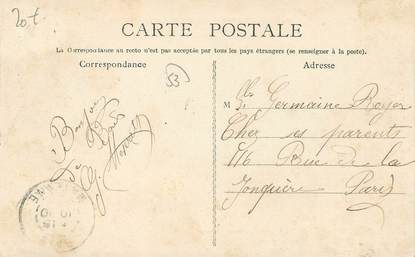 20 t
CARTE POSTALE
La Correspondance au recto n'est pas acceptée par tous les pays étrangers (se renseigner à la poste).
Correspondance
Adresse
53
Bonjour
M lle Germaine Royer
Chez ses parents
116 Rue de la
Jonquière Paris